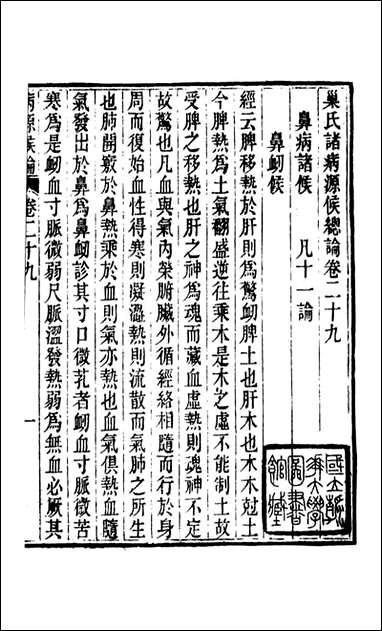 巢氏諸病源候總論卷二十九
鼻病諸候　凡十一論
鼻衂候
經云脾移熱於肝則為驚衂脾土也肝木也木本尅土
今脾熱為土氣翻盛逆往乘木是木之虛不能制土故
受脾之移熱也肝之神為魂而藏血虛熱則魂神不定
故驚也凡血與氣內榮腑臟外循經絡相隨而行於身
周而復始血性得寒則凝澀熱則流散而氣肺之所生
也肺開竅於鼻熱乘於血則氣亦熱也血氣俱熱血隨
氣發出於鼻為鼻衂診其寸口微芤者衂血寸脈微苦
寒為是衂血寸脈微弱尺脈澀發熱弱為無血必厥其
病源候論
卷二十九
一
國立
大學
圖書
館藏